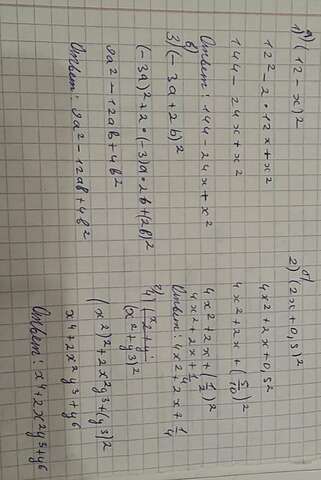 а)
1) (12 - x)²
12² - 2 · 12x + x²
144 - 24x + x²
Ответ: 144 - 24x + x²
в)
3) (-3a + 2b)²
(-3a)² + 2 · (-3)a · 2b + (2b)²
9a² - 12ab + 4b²
Ответ: 9a² - 12ab + 4b²
б)
2) (2x + 0,5)²
4x² + 2x + 0,5²
4x² + 2x + (5/10)²
4x² + 2x + (1/2)²
4x² + 2x + 1/4
Ответ: 4x² + 2x + 1/4
г)
4) (x² + y³)²
(x²)² + 2x²y³ + (y³)²
x⁴ + 2x²y³ + y⁶
Ответ: x⁴ + 2x²y³ + y⁶